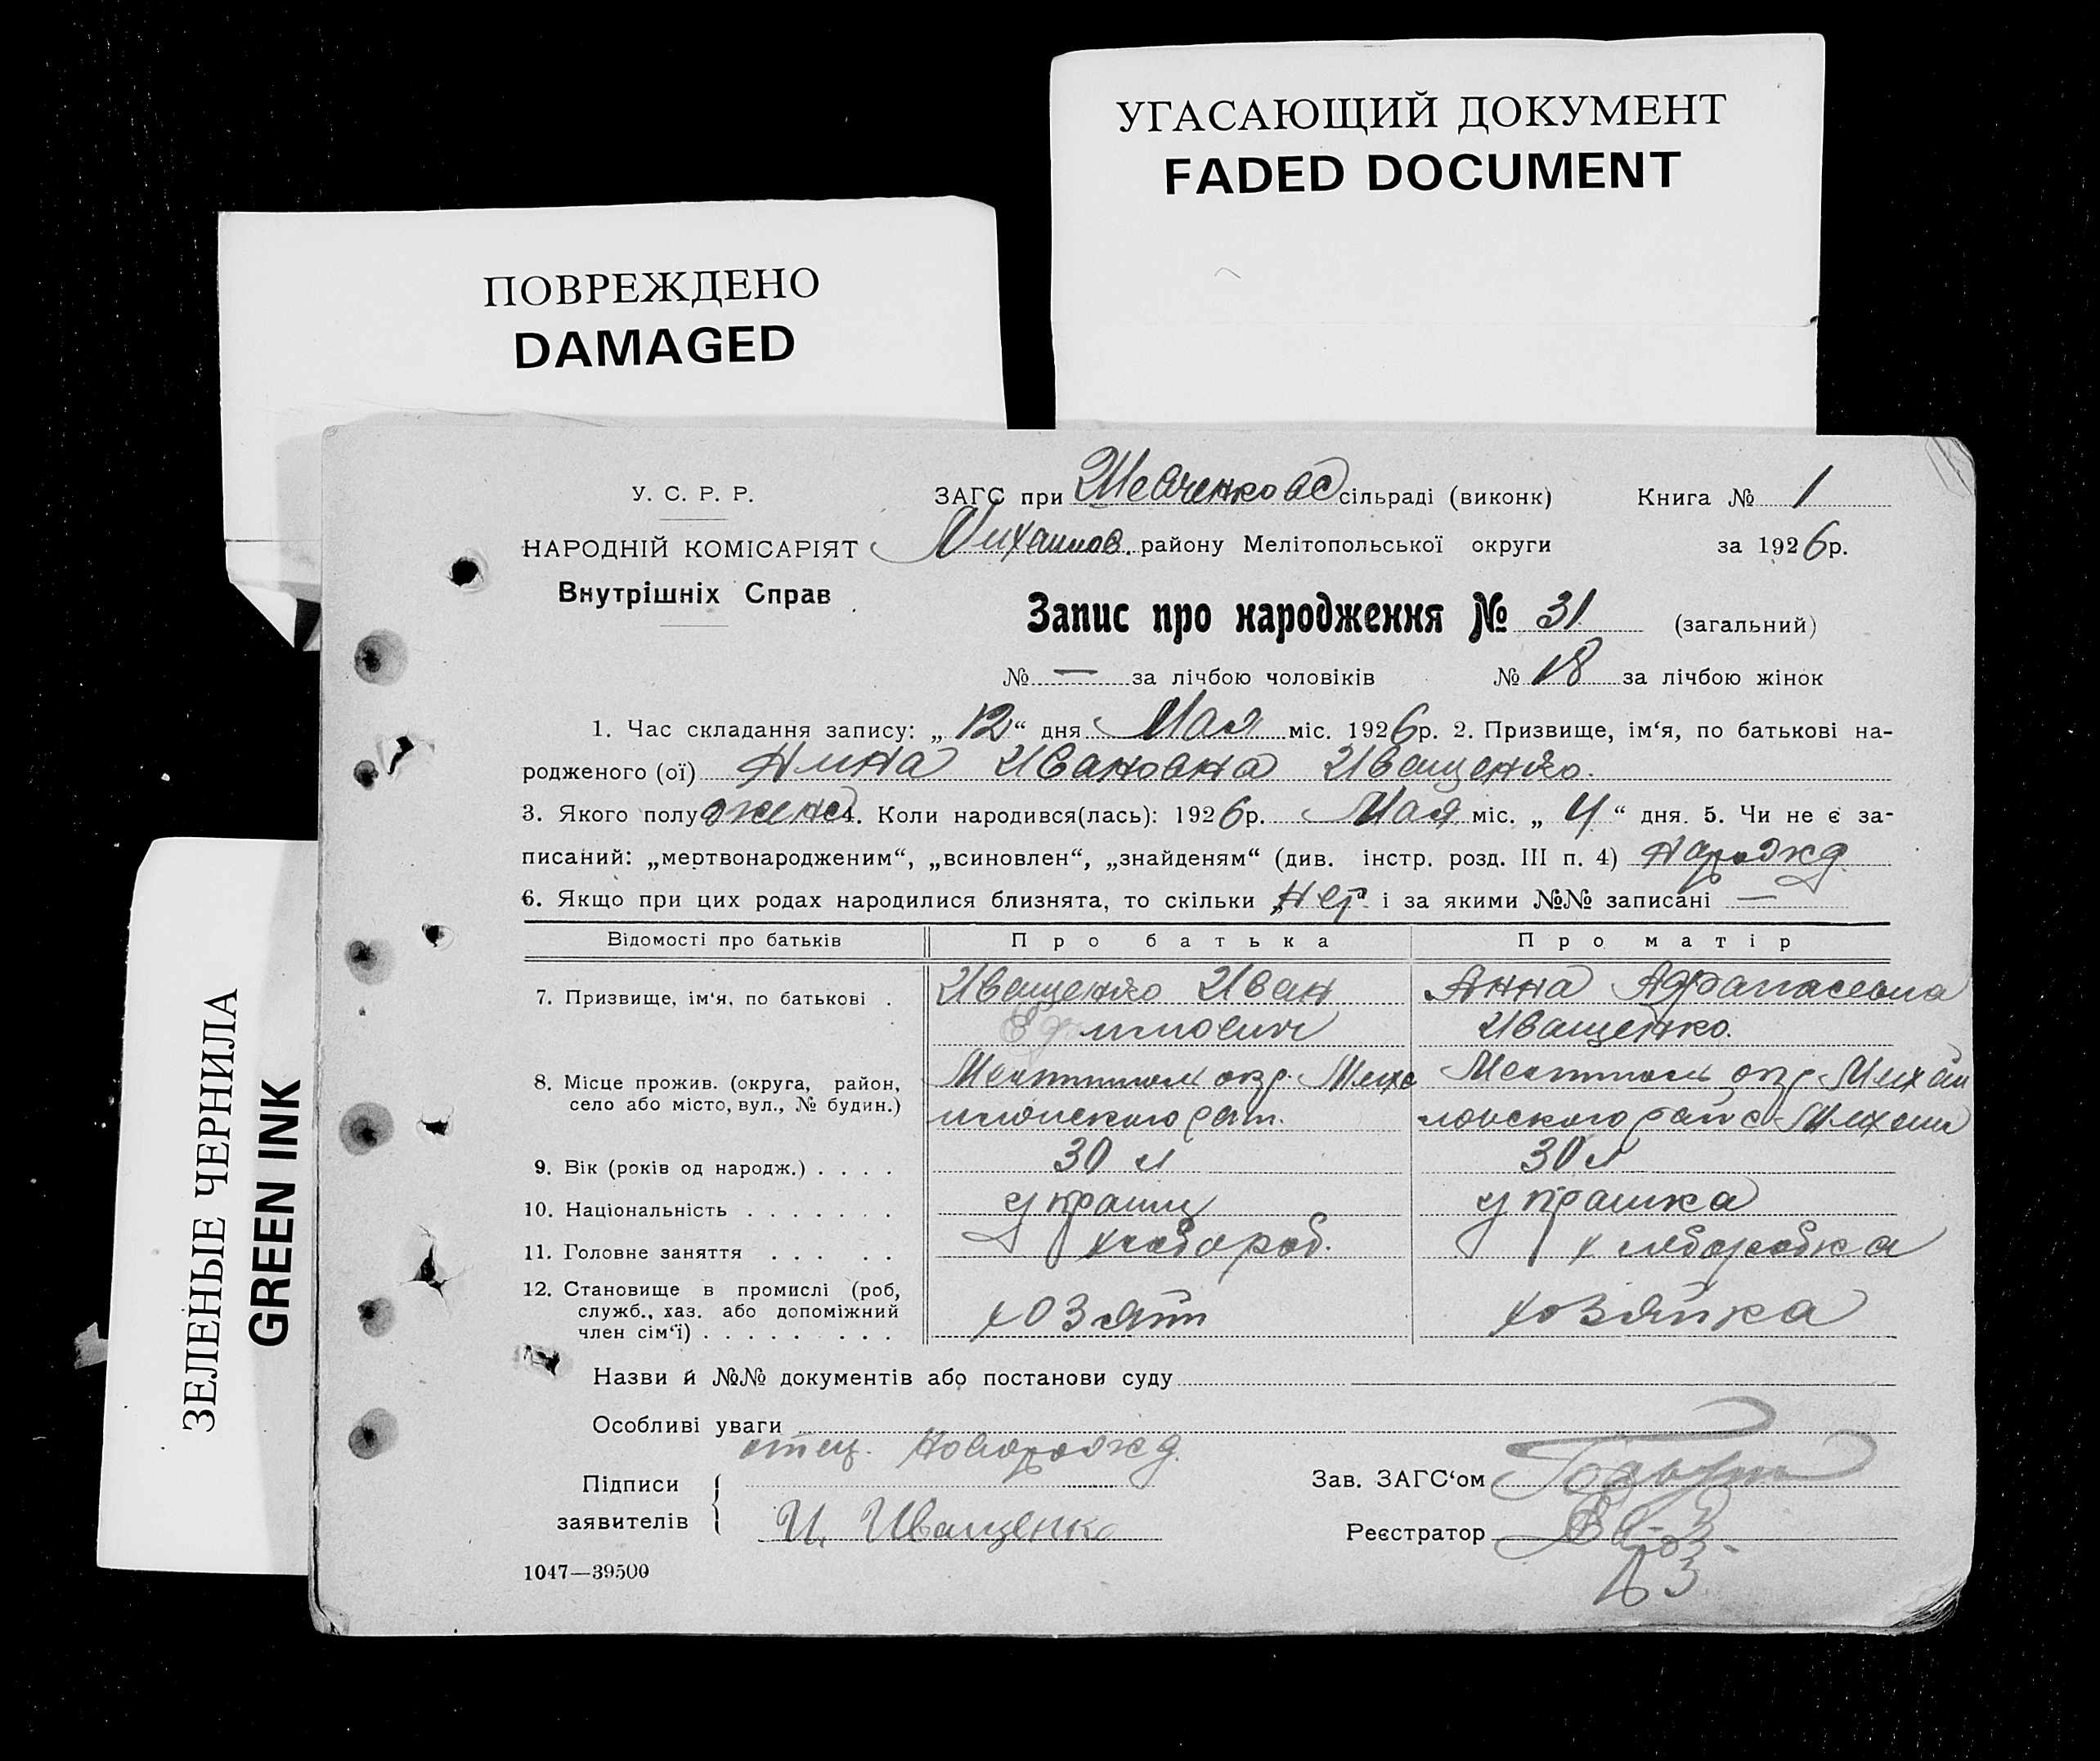 УГАСАЮЩИЙ ДОКУМЕНТ
FADED DOCUMENT
ПОВРЕЖДЕНО
DAMAGED
ЗЕЛЕНЫЕ ЧЕРНИЛА
GREEN INK
У. С. Р. Р.
НАРОДНІЙ КОМІСАРІЯТ
Внутрішніх Справ
ЗАГС при Шевченковс сільраді (виконк) Книга № 1
Михайлов. району Мелітопольської округи за 1926р.
Запис про народження № 31 (загальний)
№ — за лічбою чоловіків № 18 за лічбою жінок
1. Час складання запису: „12“ дня Мая міс. 1926р. 2. Призвище, ім‘я, по батькові на-
родженого (ої) Нина Ивановна Иващенко.
3. Якого полу женс 4. Коли народився(лась): 1926р. Мая міс. „4“ дня. 5. Чи не є за-
писаний: „мертвонародженим“, „всиновлен“, „знайденям“ (див. інстр. розд. III п. 4) Нарожд.
6. Якщо при цих родах народилися близнята, то скільки нет і за якими №№ записані —
Відомості про батьків Про батька Про матір
7. Призвище, ім‘я, по батькові . Иващенко Иван Анна Афанасевна
Иващенко.
8. Місце прожив. (округа, район, село або місто, вул., № будин.) Мелитополь окр. Миха Мелитополь окр Михай
ловского рай. ловского рай с Михайл
9. Вік (років од народж.) . . . . 30 л 30 л
10. Національність . . . . . . . украин украинка
11. Головне заняття . . . . . хлебороб. хлеборобка
12. Становище в промислі (роб, служб., хаз. або допоміжний член сім‘ї) . . . . . . . . . хозяин хозяйка
Назви й №№ документів або постанови суду
Особливі уваги
отец новорожд.
Підписи
заявителів И. Иващенко
Зав. ЗАГС‘ом
Реєстратор
1047—39500